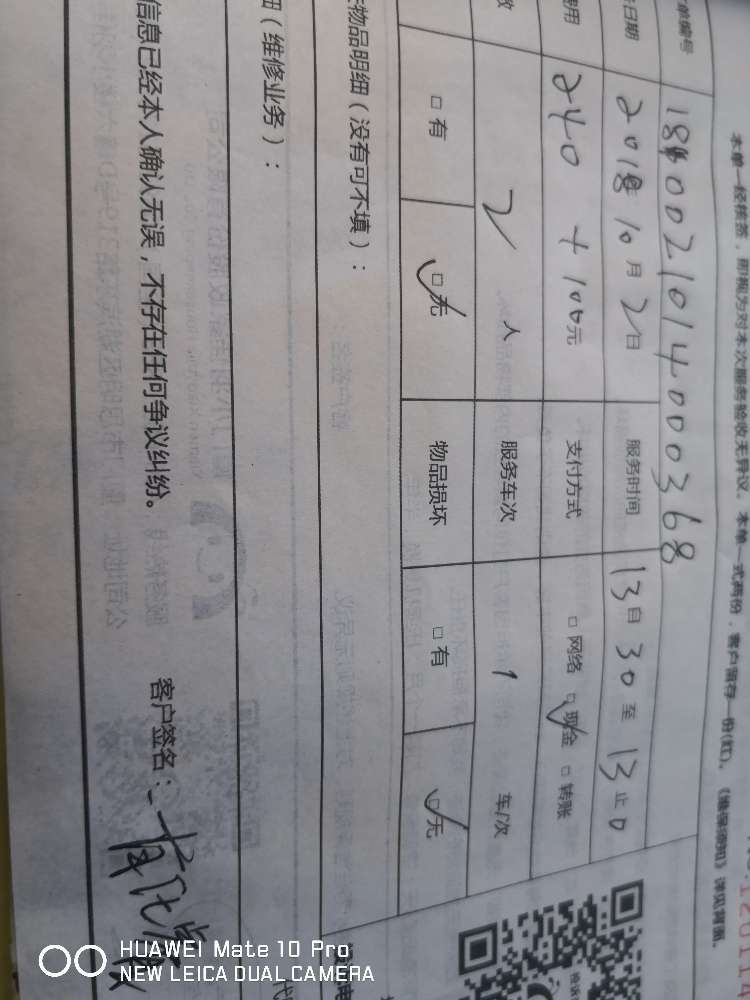 本单一经核签，即视为对本次服务验收无异议。本单一式两份，客户留存一份(红)。《维保须知》详见背面。
单编号 18600210140000368
日期 2018年10月2日 服务时间 13自30至13止0
费用 240 + 100元 支付方式 □网络 ☑现金 □转账
数 2人 服务车次 1 车/次
□有 ☑无 物品损坏 □有 ☑无
物品明细（没有可不填）：
细（维修业务）：
信息已经本人确认无误，不存在任何争议纠纷。 客户签名：
HUAWEI Mate 10 Pro
NEW LEICA DUAL CAMERA